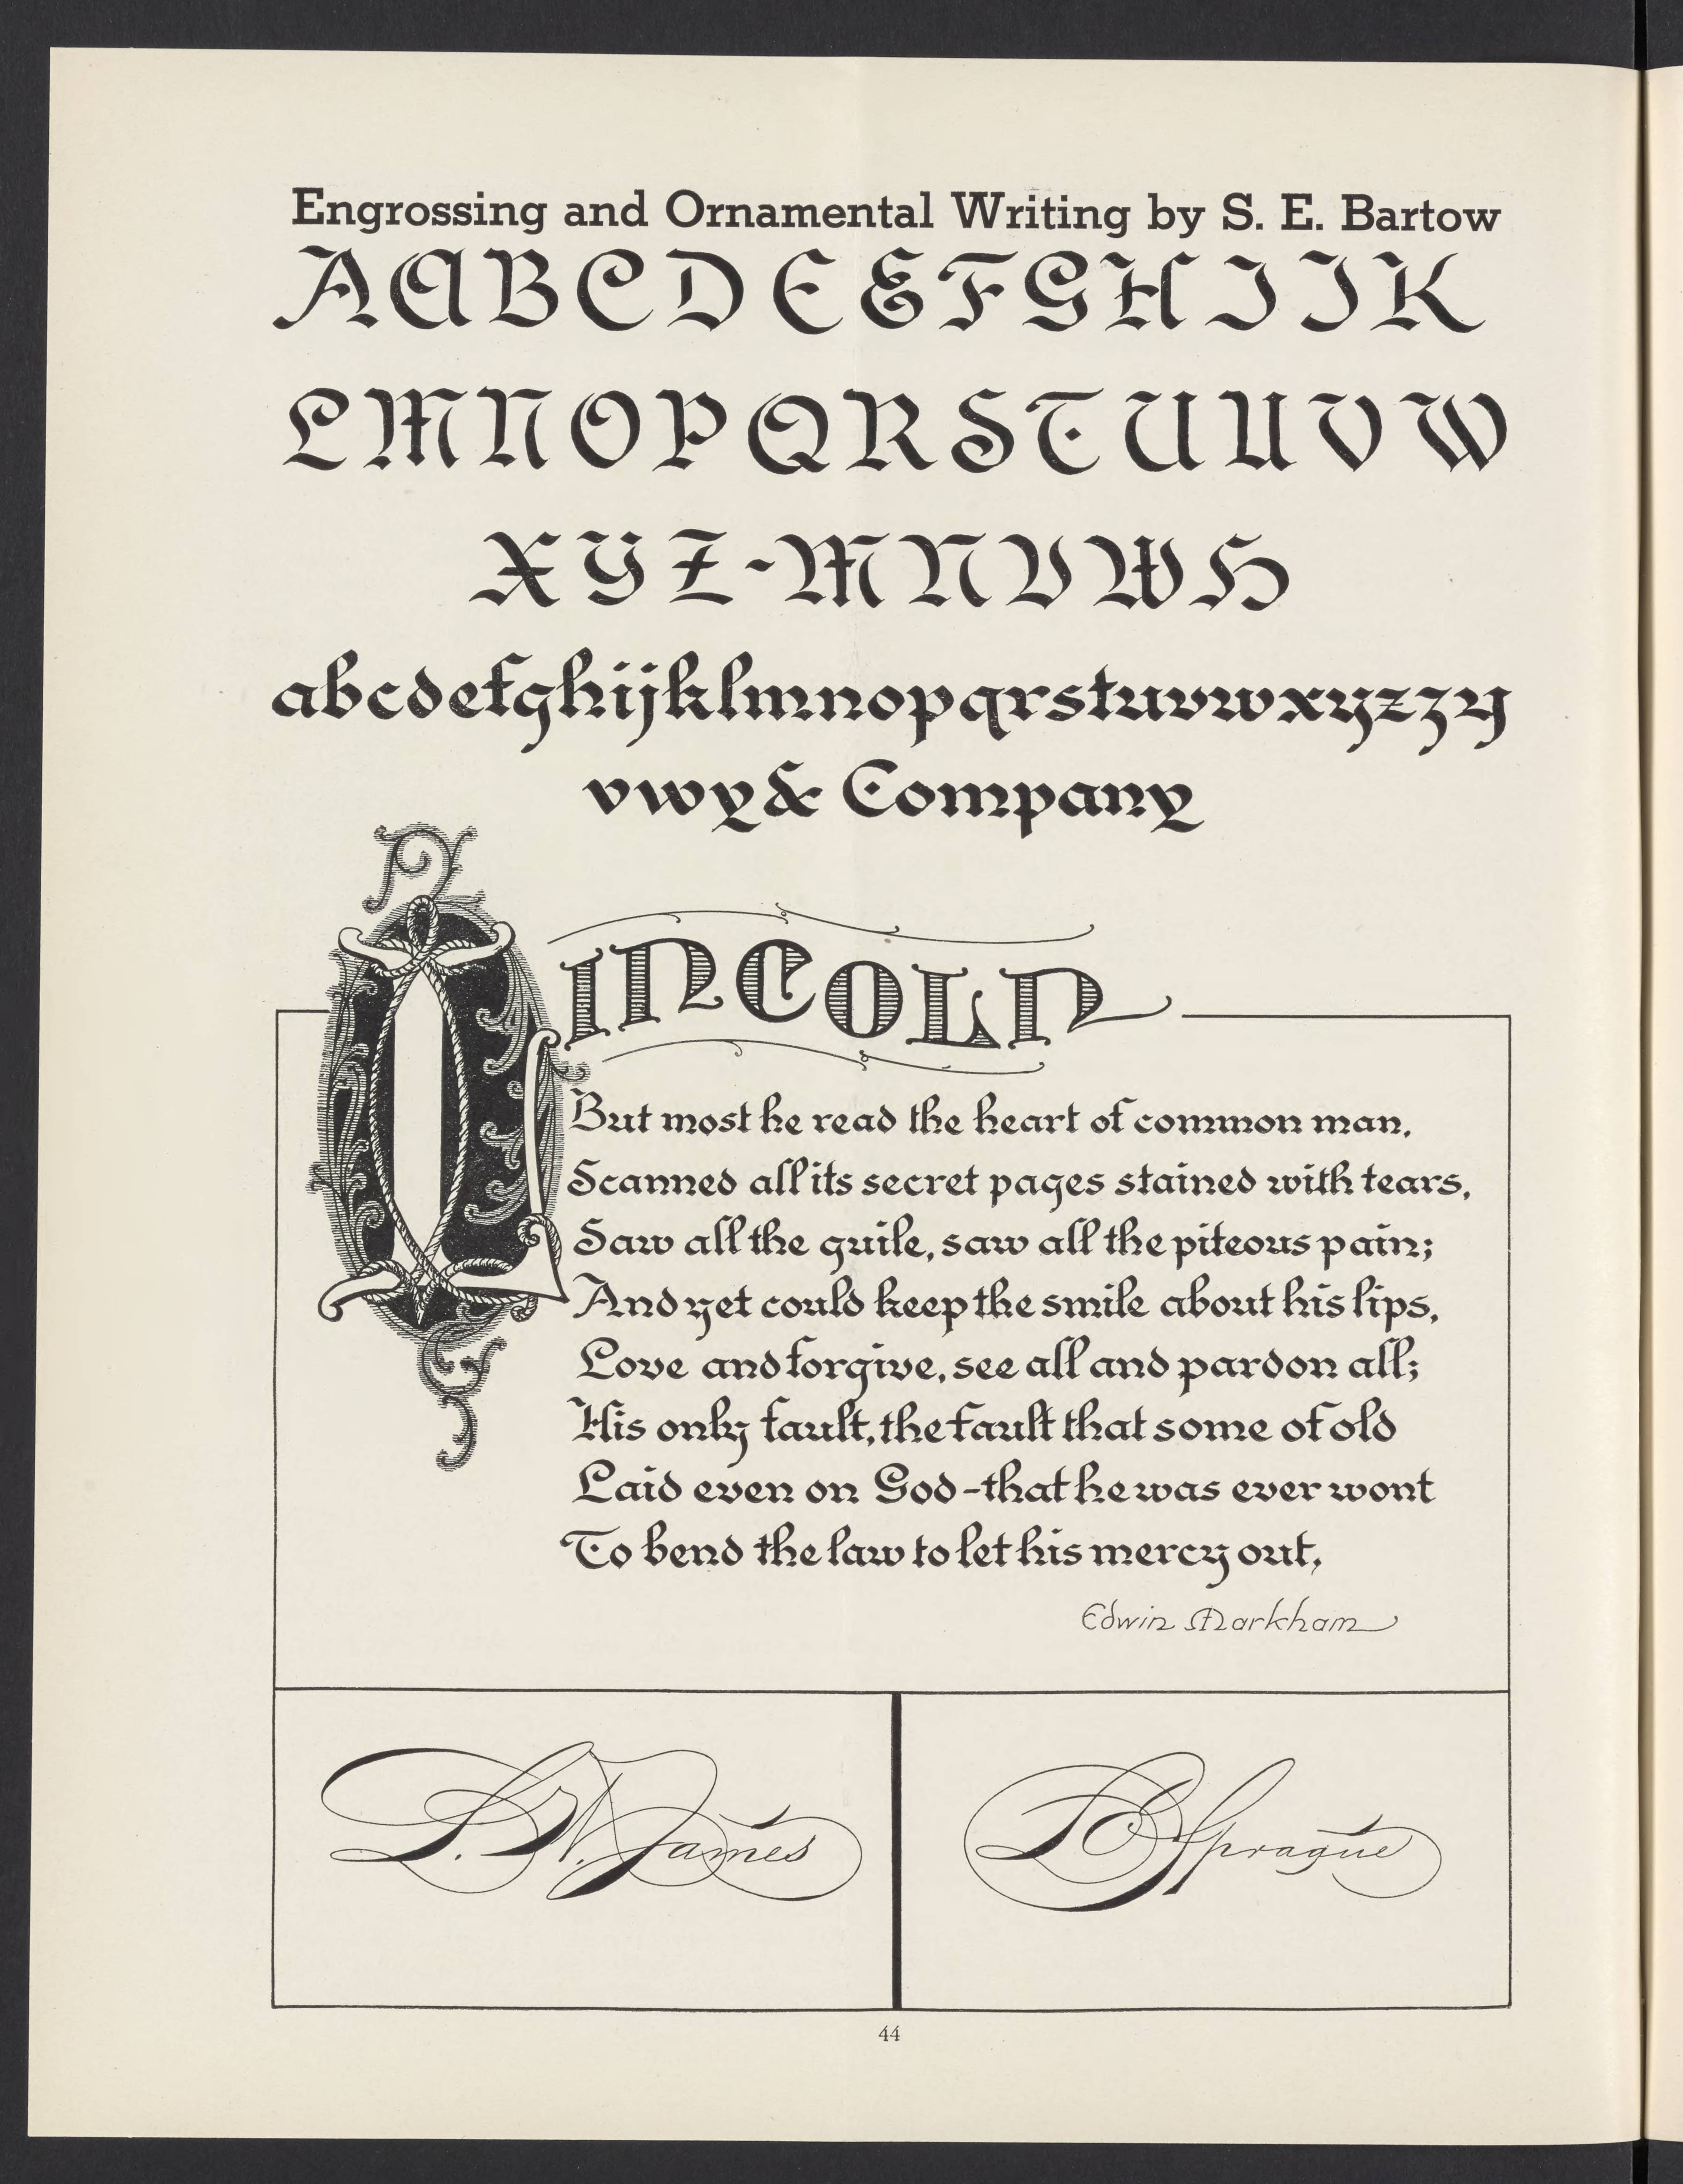 Engrossing and Ornamental Writing by S. E. Bartow
A A B C D E E F G H I J K
L M N O P Q R S T U U V W
X Y Z - M N V W H
a b c d e f g h i j k l m n o p q r s t u v w x y z z y
v w y & Company
LINCOLN
But most he read the heart of common man,
Scanned all its secret pages stained with tears,
Saw all the guile, saw all the piteous pain;
And yet could keep the smile about his lips,
Love and forgive, see all and pardon all;
His only fault, the fault that some of old
Laid even on God - that he was ever wont
To bend the law to let his mercy out.
Edwin Markham
L. W. James
L C Sprague
44